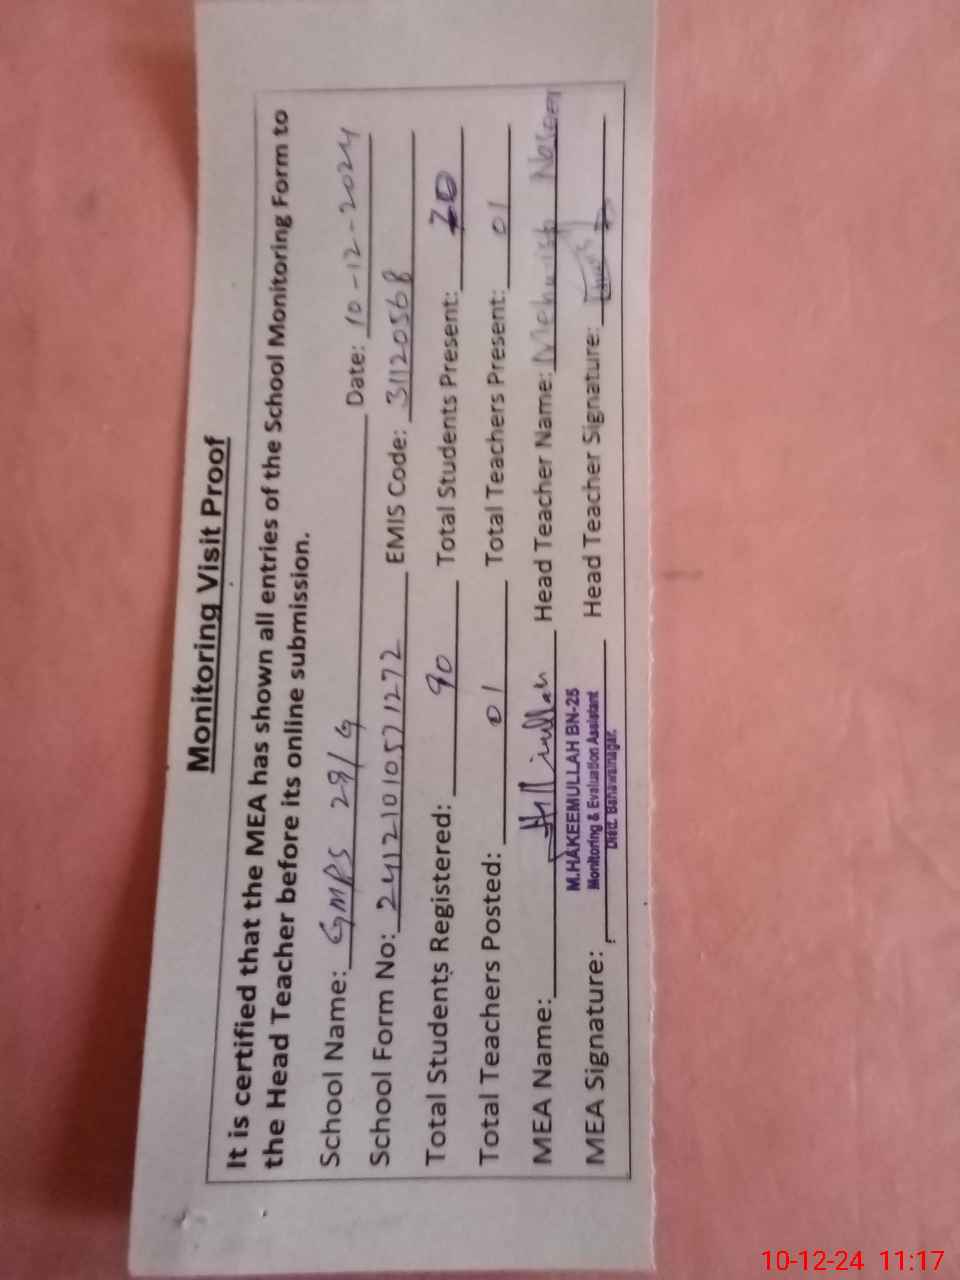 Monitoring Visit Proof
It is certified that the MEA has shown all entries of the School Monitoring Form to
the Head Teacher before its online submission.
School Name: GMPS 29/G Date: 10-12-2024
School Form No: 241210105711272 EMIS Code: 31120568
Total Students Registered: 90 Total Students Present: 70
Total Teachers Posted: 01 Total Teachers Present: 01
MEA Name: Head Teacher Name: Mehwish Noreen
M.HAKEEMULLAH BN-25
Monitoring & Evaluation Assistant
Distt. Bahawalnagar.
MEA Signature: Head Teacher Signature:
10-12-24 11:17